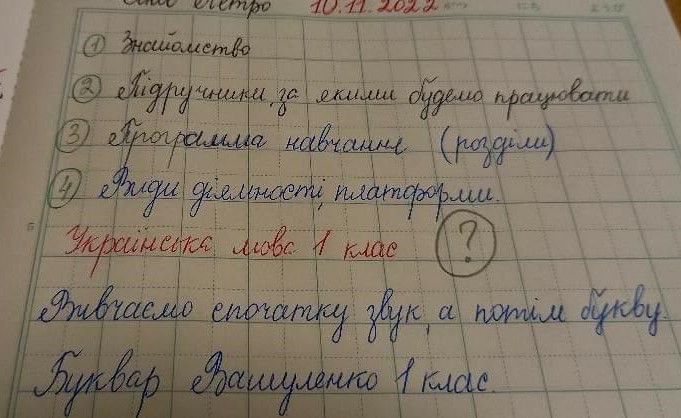 10.11.2022
① Знайомство
② Підручники, за якими будемо працювати
③ Программа навчання (розділи)
④ Види діяльності, платформи.
Українська мова 1 клас ?
Вивчаємо спочатку звук, а потім букву.
Буквар Вашуленко 1 клас.